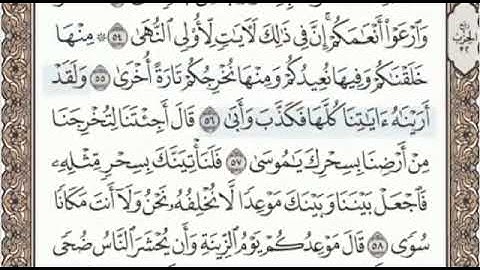 وَٱرْعَوْا۟ أَنْعَـٰمَكُمْ ۗ إِنَّ فِى ذَٰلِكَ لَـَٔايَـٰتٍ لِّأُو۟لِى ٱلنُّهَىٰ ٥٤ ۞ مِنْهَا
خَلَقْنَـٰكُمْ وَفِيهَا نُعِيدُكُمْ وَمِنْهَا نُخْرِجُكُمْ تَارَةً أُخْرَىٰ ٥٥ وَلَقَدْ
أَرَيْنَـٰهُ ءَايَـٰتِنَا كُلَّهَا فَكَذَّبَ وَأَبَىٰ ٥٦ قَالَ أَجِئْتَنَا لِتُخْرِجَنَا
مِنْ أَرْضِنَا بِسِحْرِكَ يَـٰمُوسَىٰ ٥٧ فَلَنَأْتِيَنَّكَ بِسِحْرٍ مِّثْلِهِۦ
فَٱجْعَلْ بَيْنَنَا وَبَيْنَكَ مَوْعِدًا لَّا نُخْلِفُهُۥ نَحْنُ وَلَآ أَنتَ مَكَانًا
سُوًى ٥٨ قَالَ مَوْعِدُكُمْ يَوْمُ ٱلزِّينَةِ وَأَن يُحْشَرَ ٱلنَّاسُ ضُحًى
ربع
الحزب
٣٢